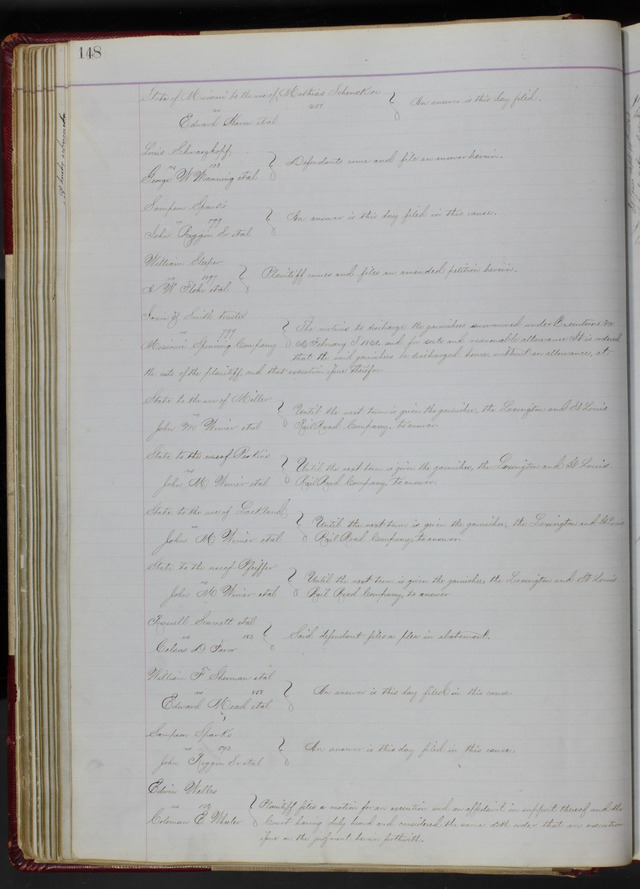 148
State of Missouri to the use of Mathias
vs
Edward et al
An answer is this day filed.
Louis
vs
George W Manning et al
Defendants come and file an answer herein.
Sampson Sparks
vs
John Riggin Sr et al
An answer is this day filed in this cause.
William
vs
W et al
Plaintiff comes and files an amended petition herein.
Smith trustee
vs 799
Missouri Company
The motion to discharge the garnishee summoned under Execution
February and for costs and reasonable allowance It is ordered
that the said garnishee be discharged hence without an allowance, at
the costs of the plaintiff, and that execution issue therefor
State to the use of Miller
vs
John M Wimer et al
Until the next term is given the garnishee, the Lexington and St Louis
Rail Road Company, to answer
State to the use of Perkins
vs
John M Wimer et al
Until the next term is given the garnishee, the Lexington and St Louis
Rail Road Company, to answer
State to the use of Lackland
vs
John M Wimer et al
Until the next term is given the garnishee, the Lexington and St Louis
Rail Road Company, to answer
State to the use of Pfeiffer
vs
John M Wimer et al
Until the next term is given the garnishee, the Lexington and St Louis
Rail Road Company, to answer
et al
vs
D
Said defendant files a plea in abatement.
William F Sherman et al
vs
Edward Mead et al
An answer is this day filed in this cause.
Sampson Sparks
vs
John Riggin Sr et al
An answer is this day filed in this cause.
Edwin Waller
vs
Coleman E Wheeler
Plaintiff files a motion for an execution and an affidavit in support thereof and the
Court having duly heard and considered the same doth order that an execution
issue on the judgment herein forthwith.